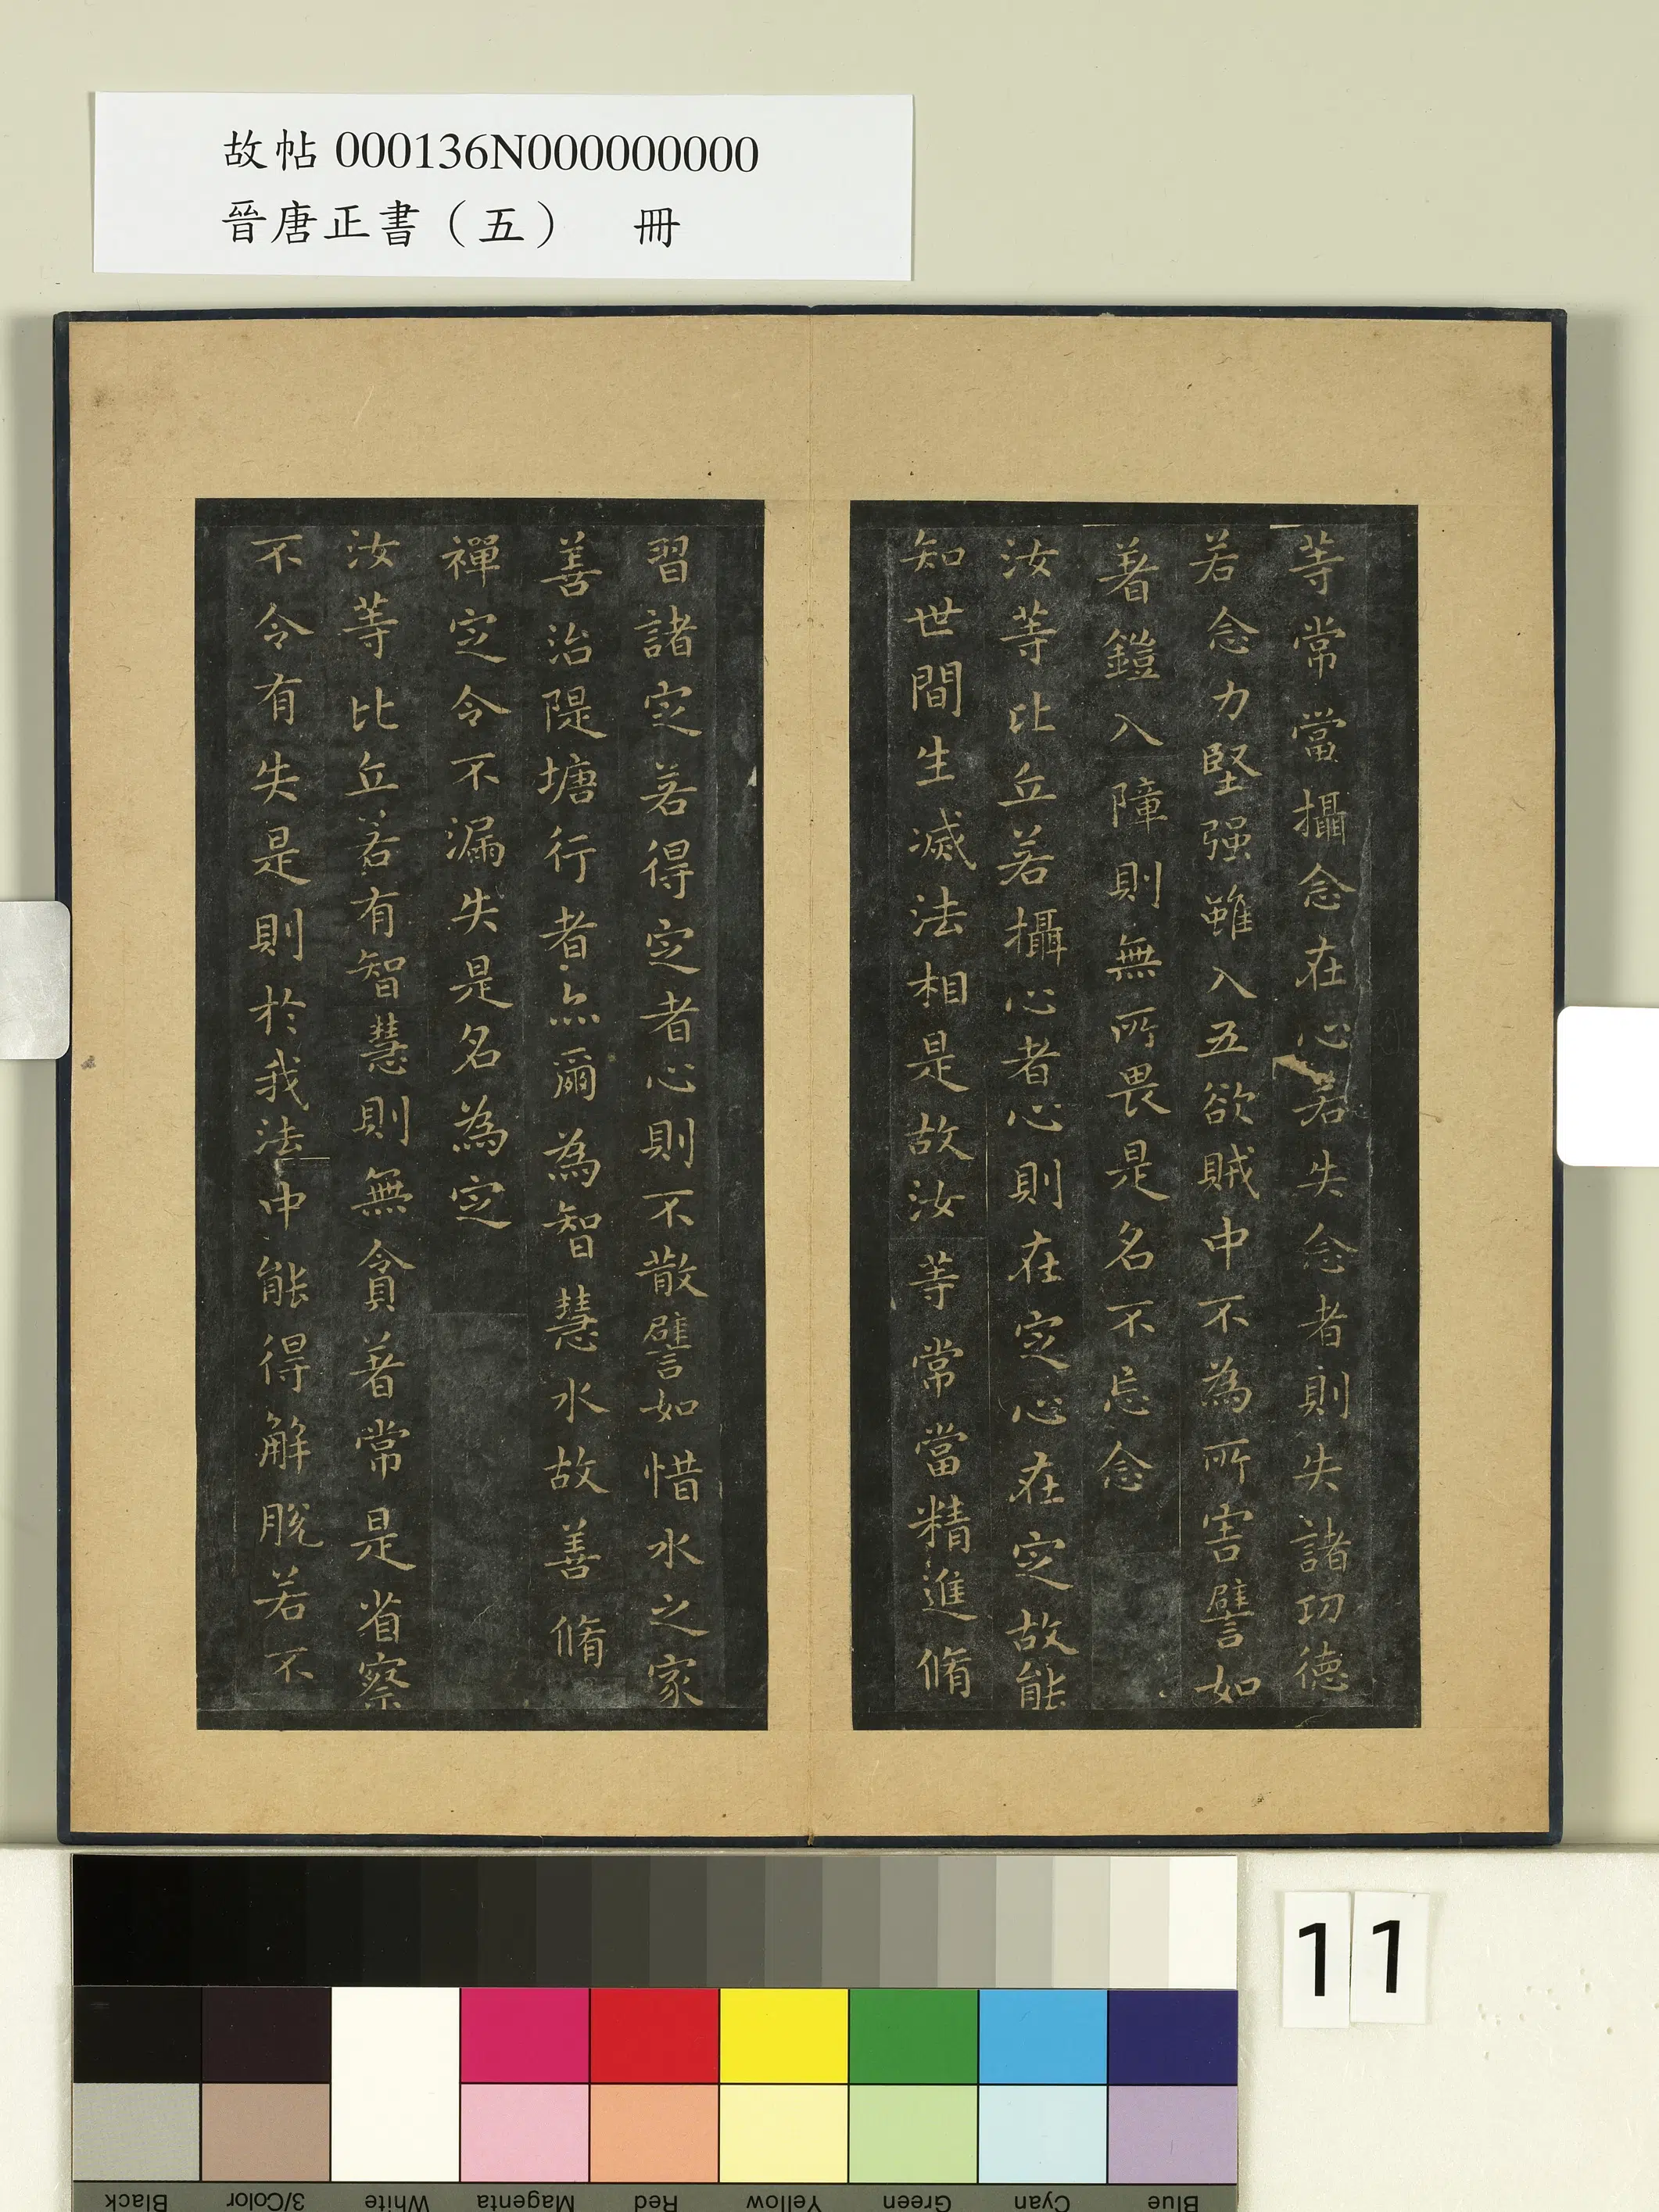 故帖 000136N000000000
晉唐正書（五） 冊
等常當攝念在心若失念者則失諸功德
若念力堅强雖入五欲賊中不為所害譬如
著鎧入障則無所畏是名不忘念
汝等比丘若攝心者心則在定心在定故能
知世間生滅法相是故汝等常當精進脩
習諸定若得定者心則不散譬如惜水之家
善治隄塘行者亦爾為智慧水故善脩
禪定令不漏失是名為定
汝等比丘若有智慧則無貪著常是省察
不令有失是則於我法中能得解脫若不
11
Black
3/Color
White
Magenta
Red
Yellow
Green
Cyan
Blue